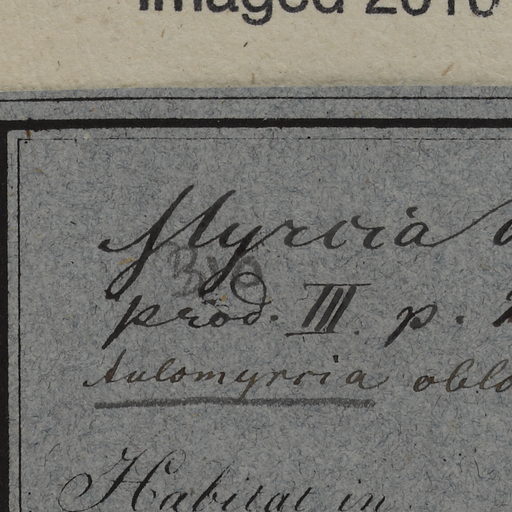 Imaged 2010
Myrcia
prod. III. p.
Aulomyrcia oblo
Habitat in